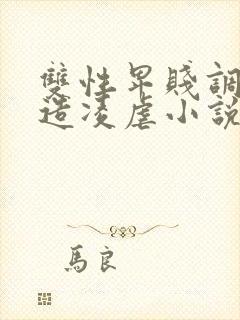 雙性卑賤調
造凌虐小說
馬良